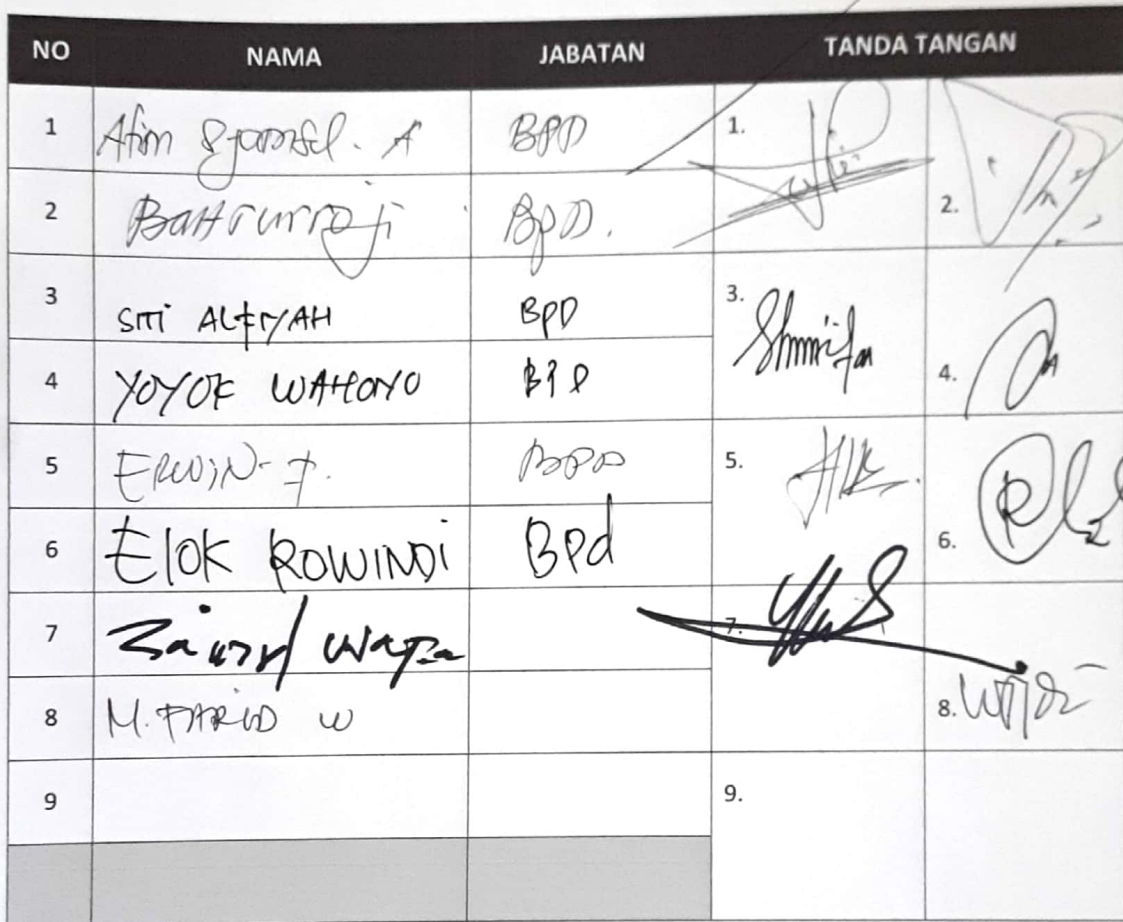 NO NAMA JABATAN TANDA TANGAN
1 Afim A BPD 1.
2 BaHrurroji BPD. 2.
3 SITI ALFIYAH BPD 3.
4 YOYOK WAHONO BPD 4.
5 ERWIN BPD 5.
6 ElOK ROWINDI BPd 6.
7 Wafa 7.
8 M. FARID W 8.
9 9.